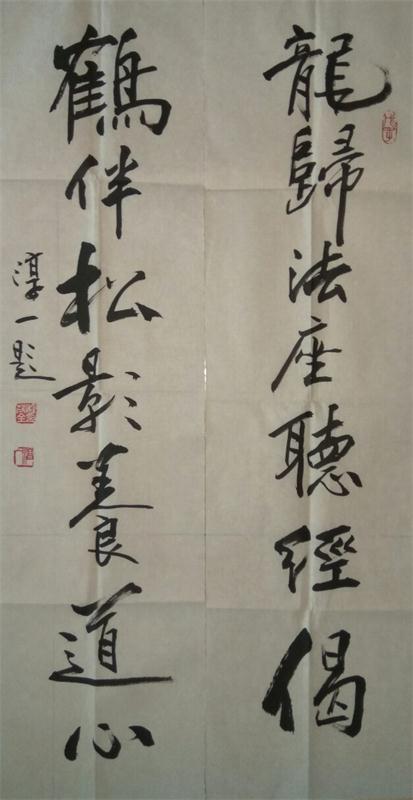 龍歸法座聽經偈
鶴伴松影養道心
淳一題